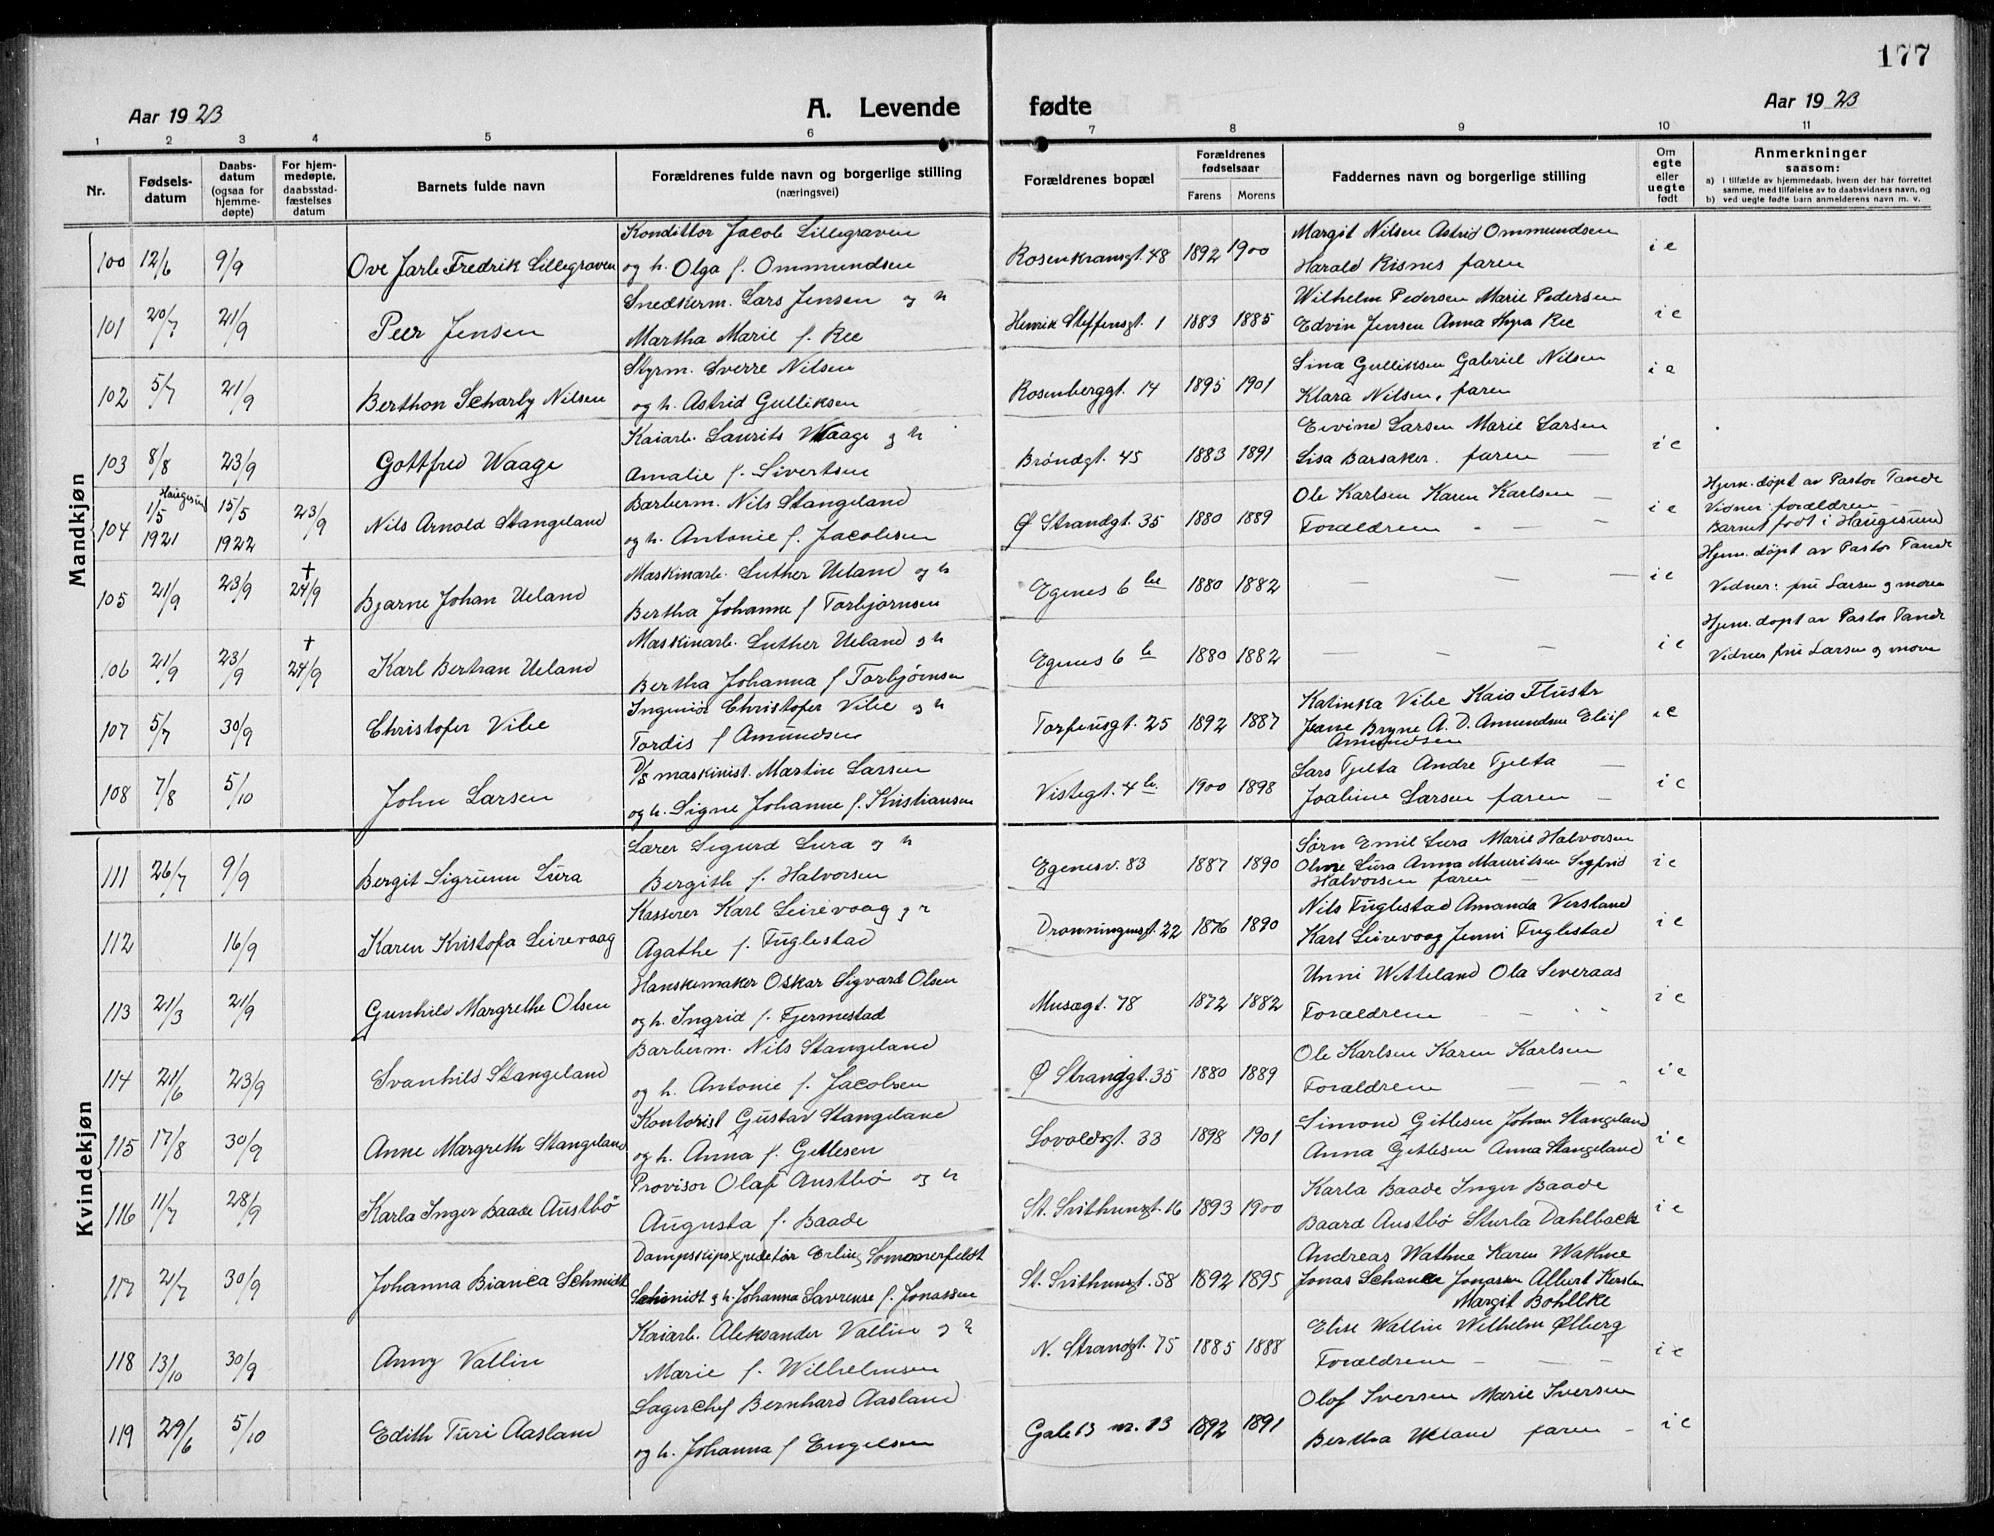 177
Aar 1923
A. Levende fødte
Aar 1923
1 2 3 4 5 6 7 8 9 10 11
Nr.
Fødsels-
datum
Daabs-
datum
(ogsaa for
hjemme-
døpte)
For hjem-
medøpte,
daabsstad-
fæstelses
datum
Barnets fulde navn
Forældrenes fulde navn og borgerlige stilling
(næringsvei)
Forældrenes bopæl
Forældrenes
fødselsaar
Farens Morens
Faddernes navn og borgerlige stilling
Om
egte
eller
uegte
født
Anmerkninger
saasom:
a) i tilfælde av hjemmedaab, hvem der har forrettet
samme, med tilføielse av to daabsvidners navn, og
b) ved uegte fødte barn anmelderens navn m. v.
Mandkjøn
Konditor Jacob Lillegraven Margit Nilsen Astrid Ommundsen
100 12/6 9/9 Ove Jarle Fredrik Lillegraven og h. Olga f. Ommundsen Rosenkransgt. 48 1892 1900 Harald Risnes faren i e
Snedkerm. Lars Jensen og h Wilhelm Pedersen Marie Pedersen
101 20/7 21/9 Peer Jensen Martha Marie f. Ree Henrik Steffensgt. 1 1883 1885 Edvin Jensen Anna Thyra Ree i e
Styrm. Sverre Nilsen Sina Gulliksen Gabriel Nilsen
102 5/7 21/9 Berthon Scharby Nilsen og h. Astrid Gulliksen Rosenberggt. 14 1895 1901 Klara Nilsen, faren i e
Kaiarb. Laurits Waage og h Eivind Larsen Marie Larsen
103 8/8 23/9 Gottfred Waage Amalie f. Sivertsen Brøndgt. 45 1883 1891 Lisa Barsaker. faren — i e
Haugesund Barberm. Nils Stangeland Ole Karlsen Karen Karlsen — Hjem. døpt av Pastor Tande
104 1/5 1921 15/5 1922 23/9 Nils Arnold Stangeland og h. Antonie f. Jacobsen Ø Strandgt. 35 1880 1889 Forældrene - — — i e Vidner: forældrene —
Barnet født i Haugesund
Maskinarb. Luther Ueland og h Hjem. døpt av Pastor Tande
105 21/9 23/9 † 24/9 Bjarne Johan Ueland Bertha Johanne f Torbjørnsen Egenes 6 be 1880 1882 — — — — i e Vidner: fru Larsen og moren
Maskinarb. Luther Ueland og h Hjem. døpt av Pastor Tande
106 21/9 23/9 † 24/9 Karl Bertran Ueland Bertha Johanna f Torbjørnsen Egenes 6 b 1880 1882 — — — i e Vidner fru Larsen og moren
Ingeniør Christofer Vibe og h Katinka Vibe Kaia
107 5/7 30/9 Christofer Vibe Tordis f Amundsen Torfeusgt. 25 1892 1887 Jane Bryne A. D. Amundsen Eilif i e
Amundsen
D/S maskinist. Martin Larsen Lars Tjelta Andre Tjelta —
108 7/8 5/10 John Larsen og h. Signe Johanne f. Kristiansen Vistegt. 4 b. 1900 1898 Joakime Larsen faren — i e
Kvindekjøn
Lærer Sigurd Lura og h Sørn Emil Lura Marie Halvorsen
111 26/7 9/9 Bergit Sigrunn Lura Bergith f. Halvorsen Egenesv. 83 1887 1890 Lura Anna Mauritsen Sigfrid i e
Halvorsen faren —
Kasserer Karl Leirevaag og h Nils Fuglestad Amanda Versland
112 16/9 Karen Kristofa Leirevaag Agathe f. Fuglestad Dronningensgt. 22 1876 1890 Karl Leirevaag Jenni Fuglestad i e
Hanskemaker Oskar Sigvard Olsen Unni Wetteland Ola Severaas
113 21/3 21/9 Gunhild Margrethe Olsen og h. Ingrid f. Fjermestad Musægt. 78 1872 1882 Forældrene - — i e
Barberm. Nils Stangeland Ole Karlsen Karen Karlsen
114 21/6 23/9 Svanhild Stangeland og h. Antonie f. Jacobsen Ø Strandgt. 35 1880 1889 Forældrene — — i e
Kontorist Gustav Stangeland Simone Gitlesen Johan Stangeland
115 17/8 30/9 Anne Margreth Stangeland og h. Anna f. Gitlesen Lovoldsgt. 33 1898 1901 Anna Gitlesen Anna Stangeland i e
Provisor Olaf Austbø og h Karla Baade Inger Baade
116 11/7 28/9 Karla Inger Baade Austbø Augusta f. Baade St. Svithunsgt. 16 1893 1900 Baard Austbø Sturla Dahlback i e
Dampskipsxpeditør Erling Sommerfeldt Andreas Wathne Karen Wathne
117 2/7 30/9 Johanna Bianca Schmidt Schmidt og h. Johanna Lavrense f. Jonassen St. Svithunsgt. 58 1892 1895 Jonas Schanche Jonassen Albert Kersten i e
Margit Bohllke
Kaiarb. Aleksander Vallin og h Elise Wallin Wilhelm Ølberg
118 13/10 30/9 Anny Vallin Marie f. Wilhelmsen N. Strandgt. 75 1885 1888 Forældrene — — — i e
Lagerchef Bernhard Aasland Olof Iversen Marie Iversen
119 29/6 5/10 Edith Turi Aasland og h. Johanna f Engelsen Gate 13 nr. 13 1892 1891 Bertha Ueland faren - i e